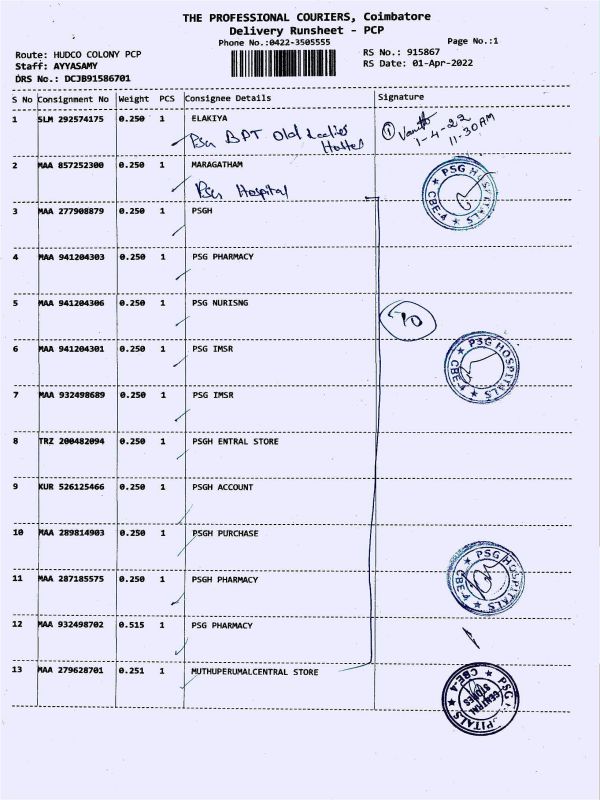 THE PROFESSIONAL COURIERS, Coimbatore
Delivery Runsheet - PCP
Phone No.:0422-3505555
Page No.:1
Route: HUDCO COLONY PCP
RS No.: 915867
Staff: AYYASAMY
RS Date: 01-Apr-2022
DRS No.: DCJB91586701
S No Consignment No Weight PCS Consignee Details Signature
1 SLM 292574175 0.250 1 ELAKIYA
BPT Old Ladies
Hostel
①
1-4-22
11-30AM
2 MAA 857252300 0.250 1 MARAGATHAM
Hospital
PSG HOSPITALS
CBE-4
3 MAA 277908879 0.250 1 PSGH
4 MAA 941204303 0.250 1 PSG PHARMACY
5 MAA 941204306 0.250 1 PSG NURISNG
10
6 MAA 941204301 0.250 1 PSG IMSR
PSG HOSPITALS
CBE-4
7 MAA 932498689 0.250 1 PSG IMSR
8 TRZ 200482094 0.250 1 PSGH ENTRAL STORE
9 KUR 526125466 0.250 1 PSGH ACCOUNT
10 MAA 289814903 0.250 1 PSGH PURCHASE
11 MAA 287185575 0.250 1 PSGH PHARMACY
PSG HOSPITALS
CBE-4
12 MAA 932498702 0.515 1 PSG PHARMACY
13 MAA 279628701 0.251 1 MUTHUPERUMALCENTRAL STORE
PSG HOSPITALS
CENTRAL
STORES
CBE-4